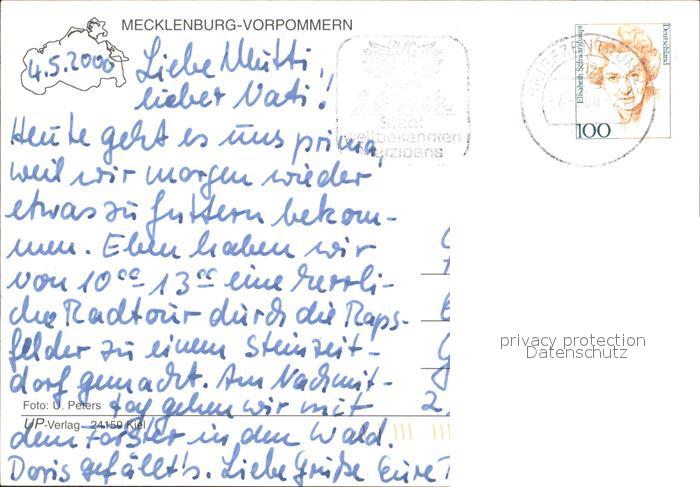 MECKLENBURG-VORPOMMERN
4.5.2000
Liebe Mutti,
lieber Vati!
Heute geht es uns prima,
weil wir morgen wieder
etwas zu futtern bekom-
men. Eben haben wir
von 10⁰⁰-13⁰⁰ eine herrli-
che Radtour durch die Raps-
felder zu einem Steinzeit-
dorf gemacht. Am Nachmit-
tag gehen wir mit
dem Förster in den Wald.
Doris gefällt's. Liebe Grüße Eure
Foto: U. Peters
UP-Verlag 24159 Kiel
Stadt
weltbekannten
Marzipans
BRIEFZENTRUM
Elisabeth Schwarzhaupt
Deutschland
100
privacy protection
Datenschutz